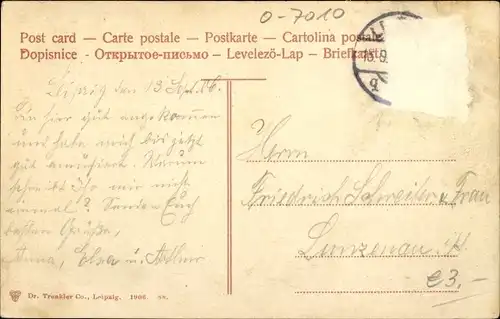 0-7010
Post card — Carte postale — Postkarte — Cartolina postale
Dopisnice - Открытое-письмо – Levelezö-Lap – Briefkart
Leipzig den 13. Sept. 06.
Sin hier gut angekommen
und habe mich bis jetzt
gut amüsiert. Warum
schreibt Ihr mir nicht
einmal? Senden Euch
besten Grüße,
Anna, Elsa u. Arthur
Herrn
Friedrich Schreiter u. Frau
Lunzenau
€3.-
Dr. Trenkler Co., Leipzig. 1906.